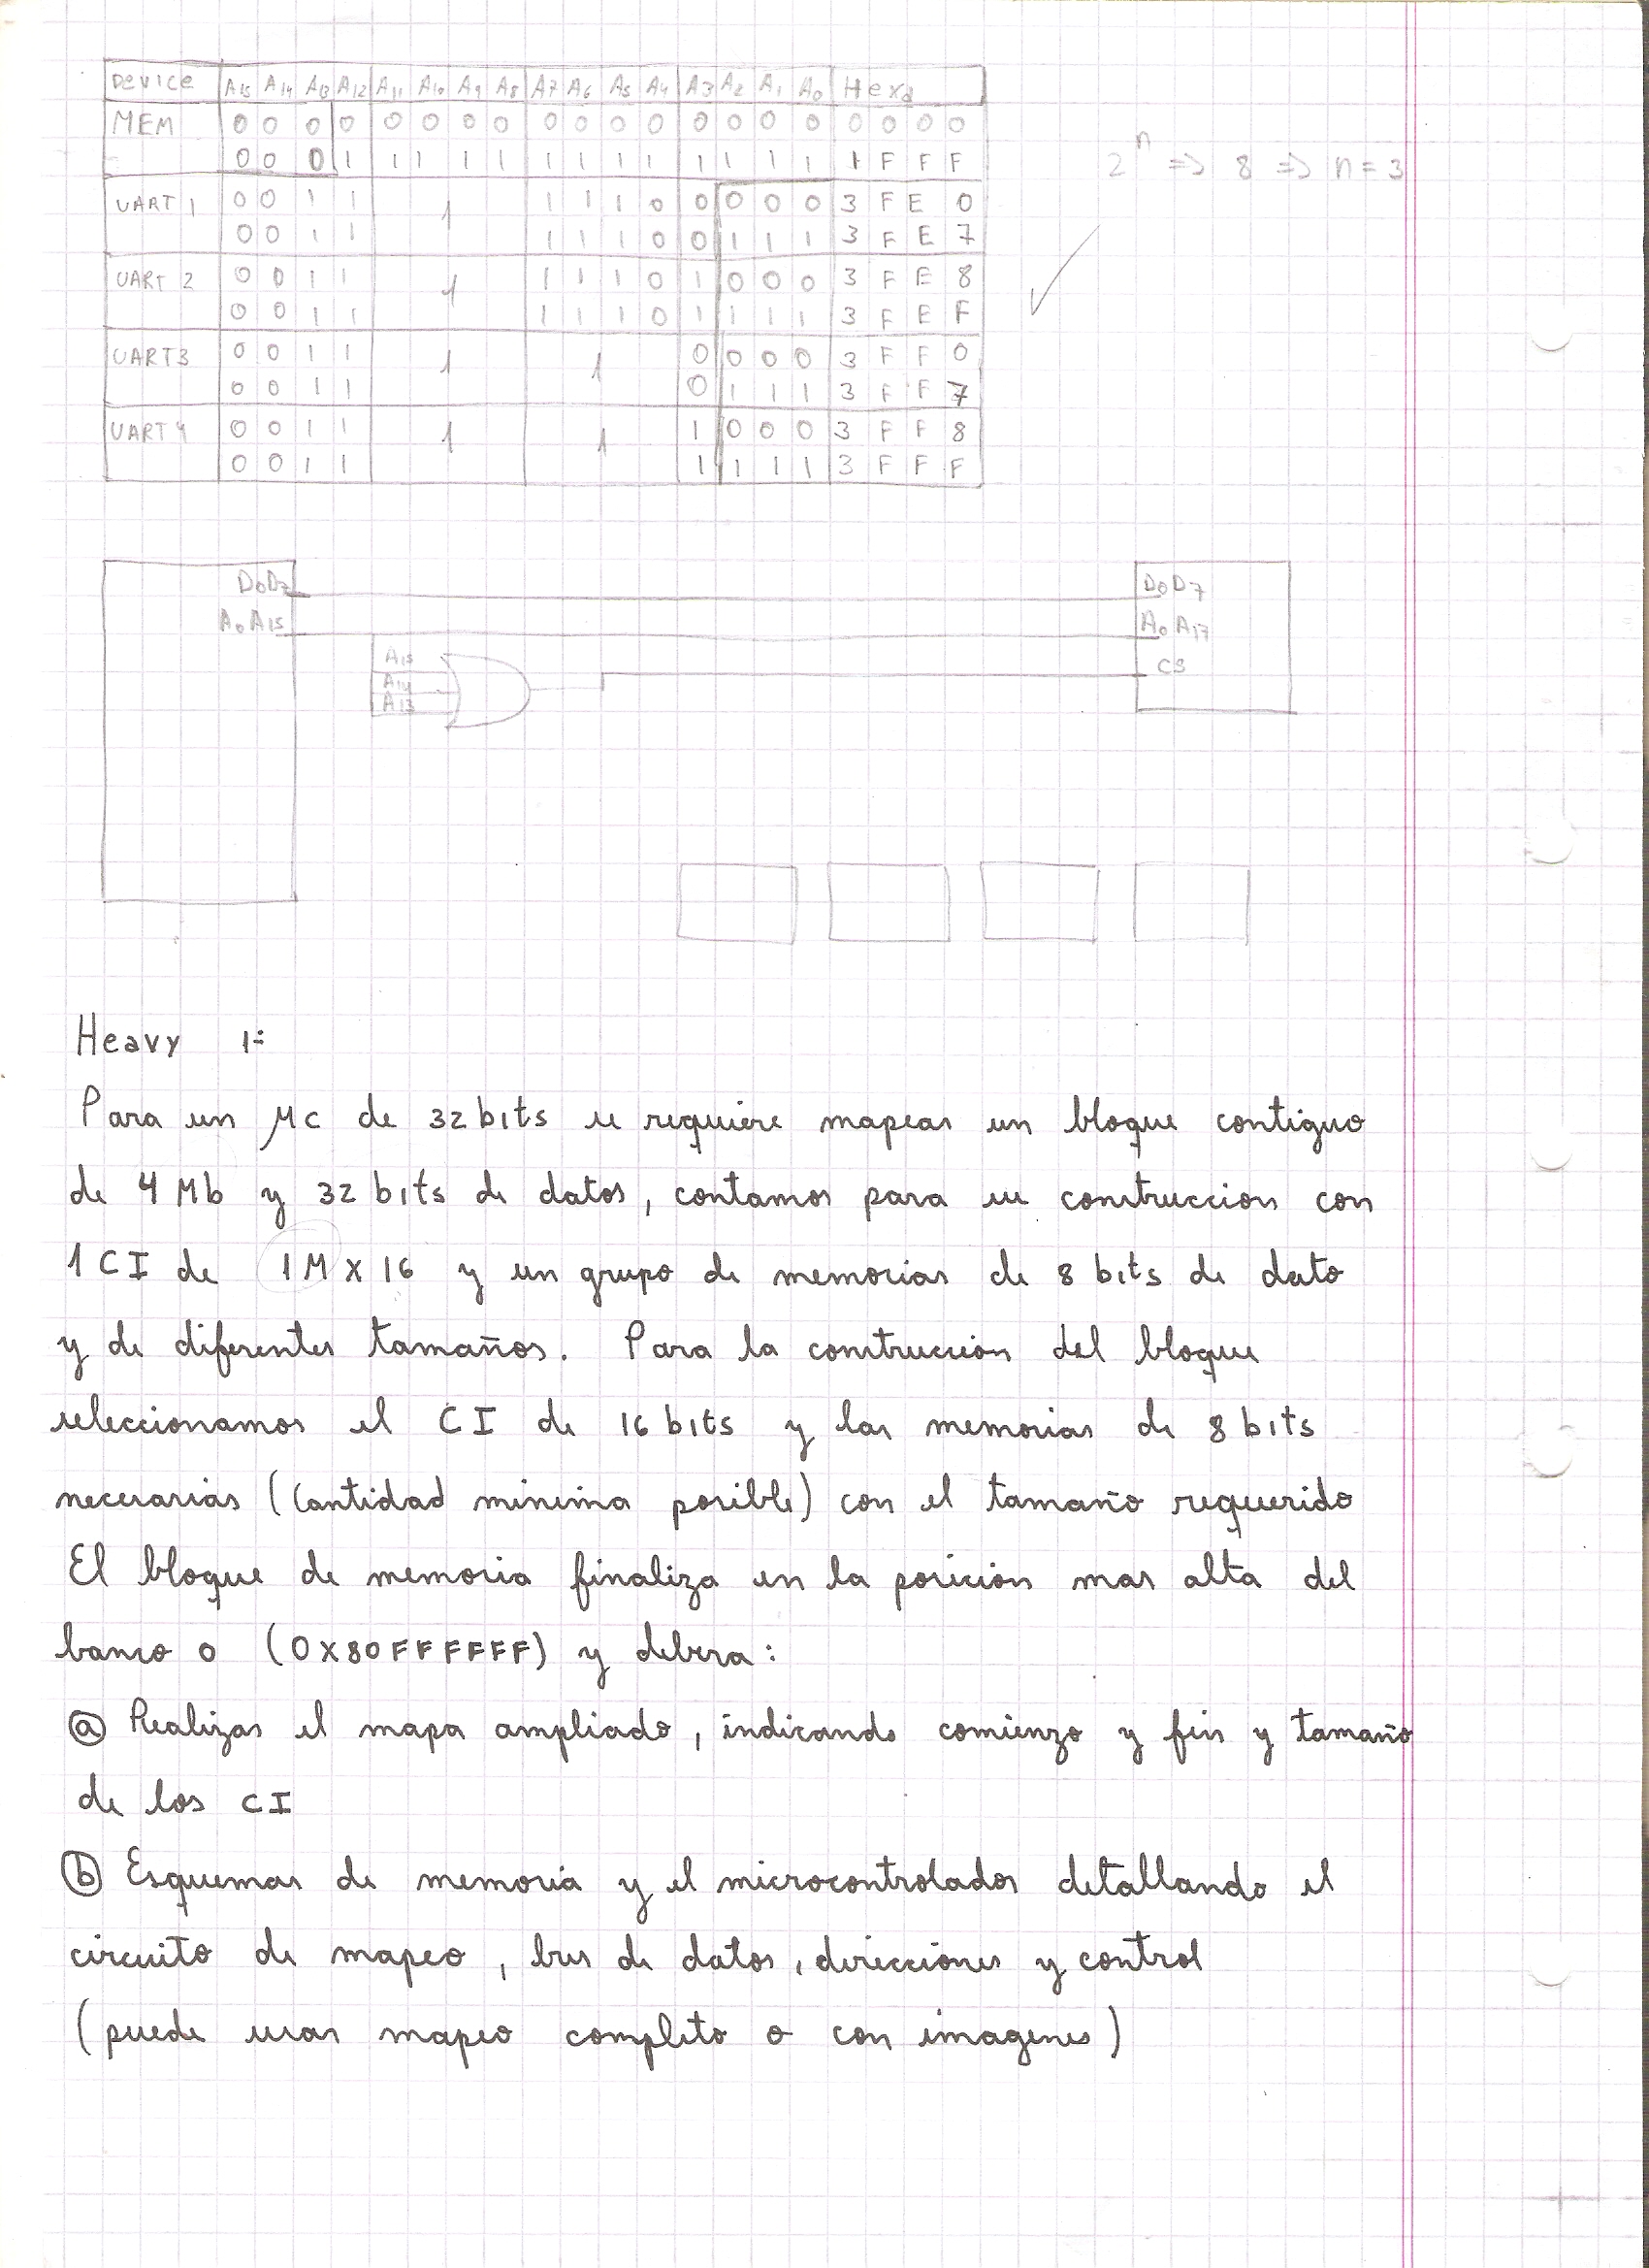 Device A15 A14 A13 A12 A11 A10 A9 A8 A7 A6 A5 A4 A3 A2 A1 A0 Hexa
MEM 0 0 0 0 0 0 0 0 0 0 0 0 0 0 0 0 0 0 0 0
0 0 0 1 1 1 1 1 1 1 1 1 1 1 1 1 1 F F F
2^n => 8 => n = 3
UART 1 0 0 1 1 1 1 1 1 0 0 0 0 0 3 F E 0
0 0 1 1 1 1 1 0 0 1 1 1 3 F E 7
UART 2 0 0 1 1 1 1 1 1 0 1 0 0 0 3 F E 8
0 0 1 1 1 1 1 0 1 1 1 1 3 F E F
UART3 0 0 1 1 1 1 0 0 0 0 3 F F 0
0 0 1 1 0 1 1 1 3 F F 7
UART 4 0 0 1 1 1 1 1 0 0 0 3 F F 8
0 0 1 1 1 1 1 1 3 F F F
D0D7 D0D7
A0 A15 A0 A17
A15
A14 CS
A13
Heavy 1:
Para un μc de 32 bits se requiere mapear un bloque contiguo
de 4 Mb y 32 bits de datos, contamos para su construccion con
1 CI de 1M x 16 y un grupo de memorias de 8 bits de dato
y de diferentes tamaños. Para la construccion del bloque
seleccionamos el CI de 16 bits y las memorias de 8 bits
necesarias (Cantidad minima posible) con el tamaño requerido
El bloque de memoria finaliza en la posicion mas alta del
banco 0 (0X80FFFFFF) y debera:
ⓐ Realizar el mapa ampliado, indicando comienzo y fin y tamaño
de los CI
ⓑ Esquemas de memoria y el microcontrolador detallando el
circuito de mapeo, bus de datos, direcciones y control
(puede usar mapeo completo o con imagenes)